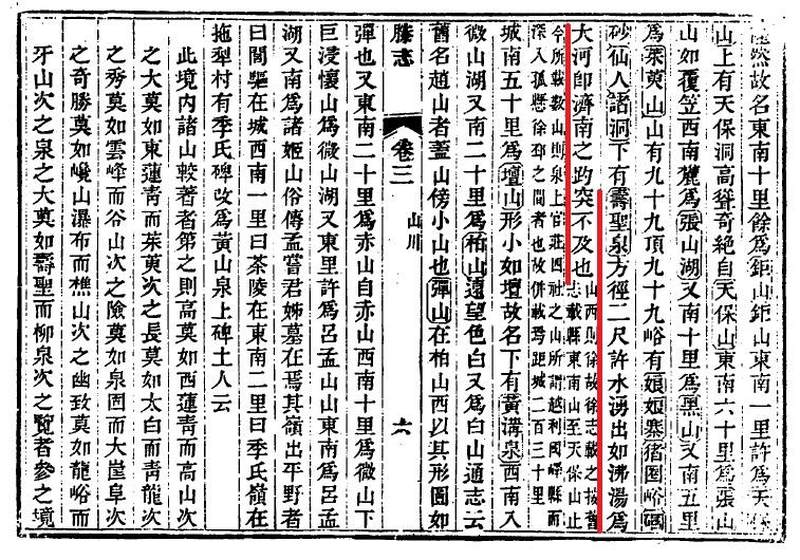 然故名東南十里餘爲鉅山鉅山東南一里許爲天
山上有天保洞高聳奇絕自天保山東南六十里爲張山
山如覆笠西南麓爲張山湖又南十里爲黑山又南五里
爲茱萸山山有九十九頂九十九峪有娘娘寨猪圈峪碙
砂仙人諸洞下有壽聖泉方徑二尺許水湧出如沸湯爲
大河卽濟南之趵突不及也
山西則徐故徐志載之按舊
志載縣東南山至天保山止
今所載數山則泉上官莊四社之山所謂越利國嶧縣而
深入孤懸徐邳之間者也故併載焉距城二百三十里
城南五十里爲壇山形小如壇故名下有黃溝泉西南入
微山湖又南二十里爲栢山遠望色白又爲白山通志云
舊名趙山者蓋山傍小山也彈山在柏山西以其形圓如
滕志 卷三 山川 六
彈也又東南二十里爲赤山自赤山西南十里爲微山下
巨浸懷山爲微山湖又東里許爲呂孟山山東南爲呂孟
湖又南爲諸姬山俗傳孟嘗君姊墓在焉其嶺出平野者
曰閻驅在城西南一里曰茶陵在東南二里曰季氏嶺在
拖犁村有季氏碑攷爲黃山泉上碑土人云
此境内諸山較著者第之則高莫如西蓮靑而高山次
之大莫如東蓮靑而茱萸次之長莫如太白而靑龍次
之秀莫如雲峰而谷山次之險莫如泉固而大崖阜次
之奇勝莫如巉山瀑布而樵山次之幽致莫如龍峪而
牙山次之泉之大莫如壽聖而柳泉次之覽者參之境